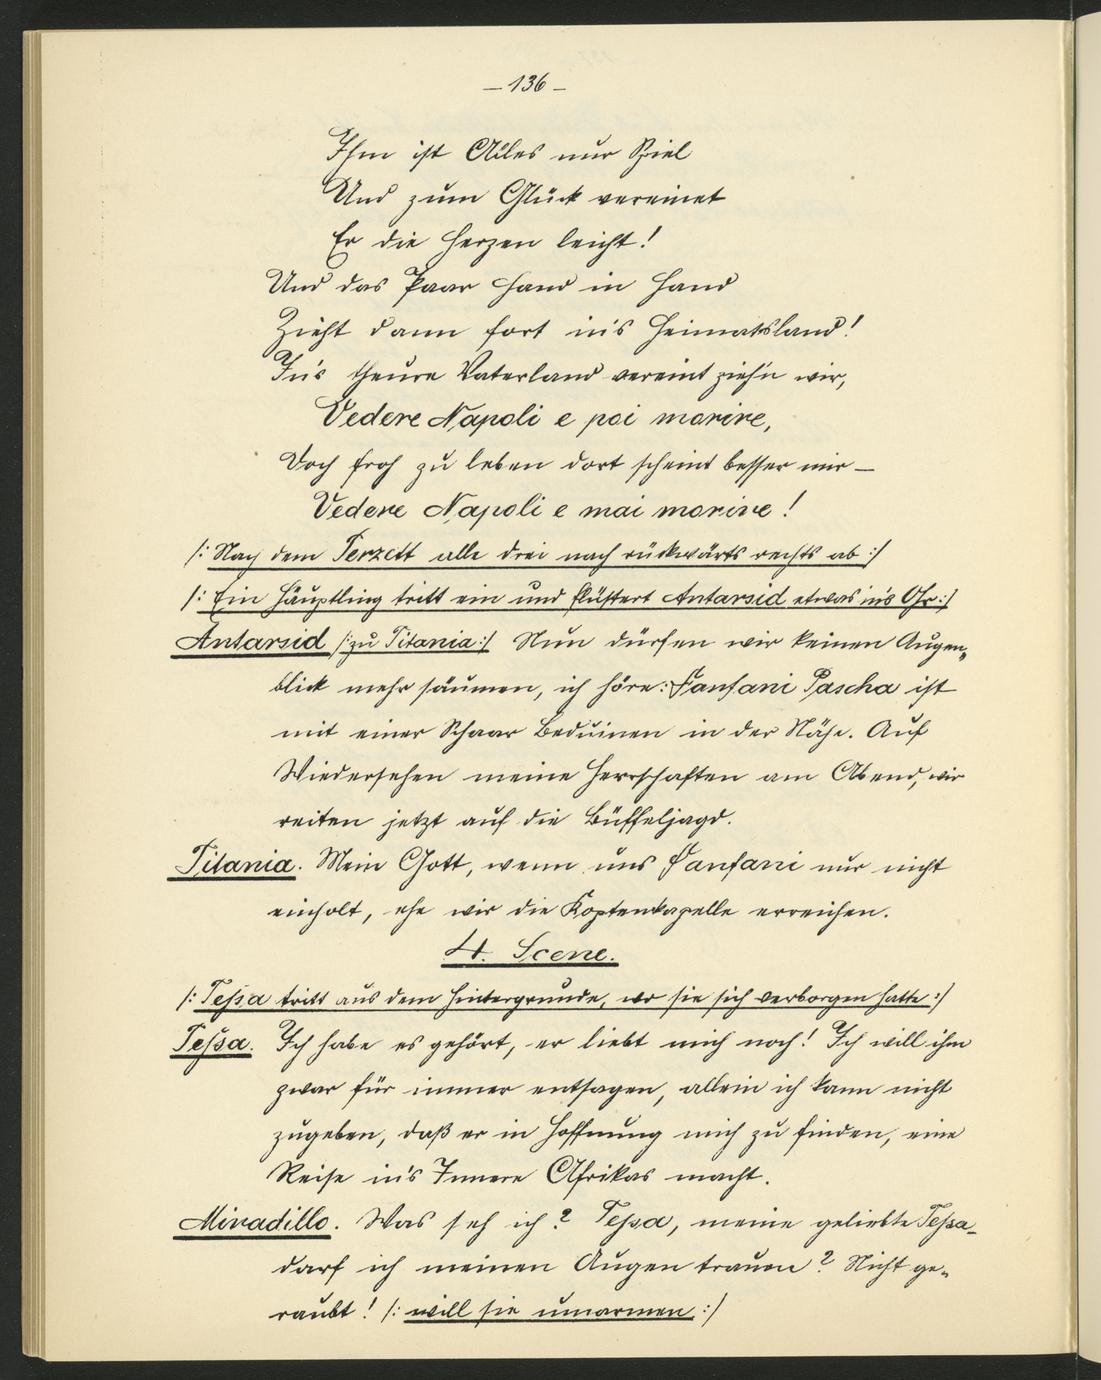 – 136 –
Ihm ist Alles nur Spiel
Und zum Glück vereinet
Er die Herzen leicht!
Und das Paar Hand in Hand
Zieht dann fort in's Heimatsland!
In's theure Vaterland vereint zieh'n wir,
Vedere Napoli e poi morire,
Doch froh zu leben dort scheint besser mir –
Vedere Napoli e mai morire!
/: Nach dem Terzett alle drei nach rückwärts rechts ab :/
/: Ein Häuptling tritt ein und flüstert Antarsid etwas in's Ohr :/
Antarsid /: zu Titania :/ Nun dürfen wir keinen Augen„
blick mehr säumen, ich höre: Fanfani Pascha ist
mit einer Schaar Beduinen in der Nähe. Auf
Wiedersehen meine Herrschaften am Abend, wir
reiten jetzt auf die Büffeljagd.
Titania. Mein Gott, wenn uns Fanfani nur nicht
einholt, ehe wir die Koptenkapelle erreichen.
4. Scene.
/: Tessa tritt aus dem Hintergrunde, wo sie sich verborgen hatte :/
Tessa. Ich habe es gehört, er liebt mich noch! Ich will ihm
zwar für immer entsagen, allein ich kann nicht
zugeben, daß er in Hoffnung mich zu finden, eine
Reise in's Innere Afrikas macht.
Miradillo. Was seh ich? Tessa, meine geliebte Tessa –
darf ich meinen Augen trauen? Nicht ge„
raubt! /: will sie umarmen :/